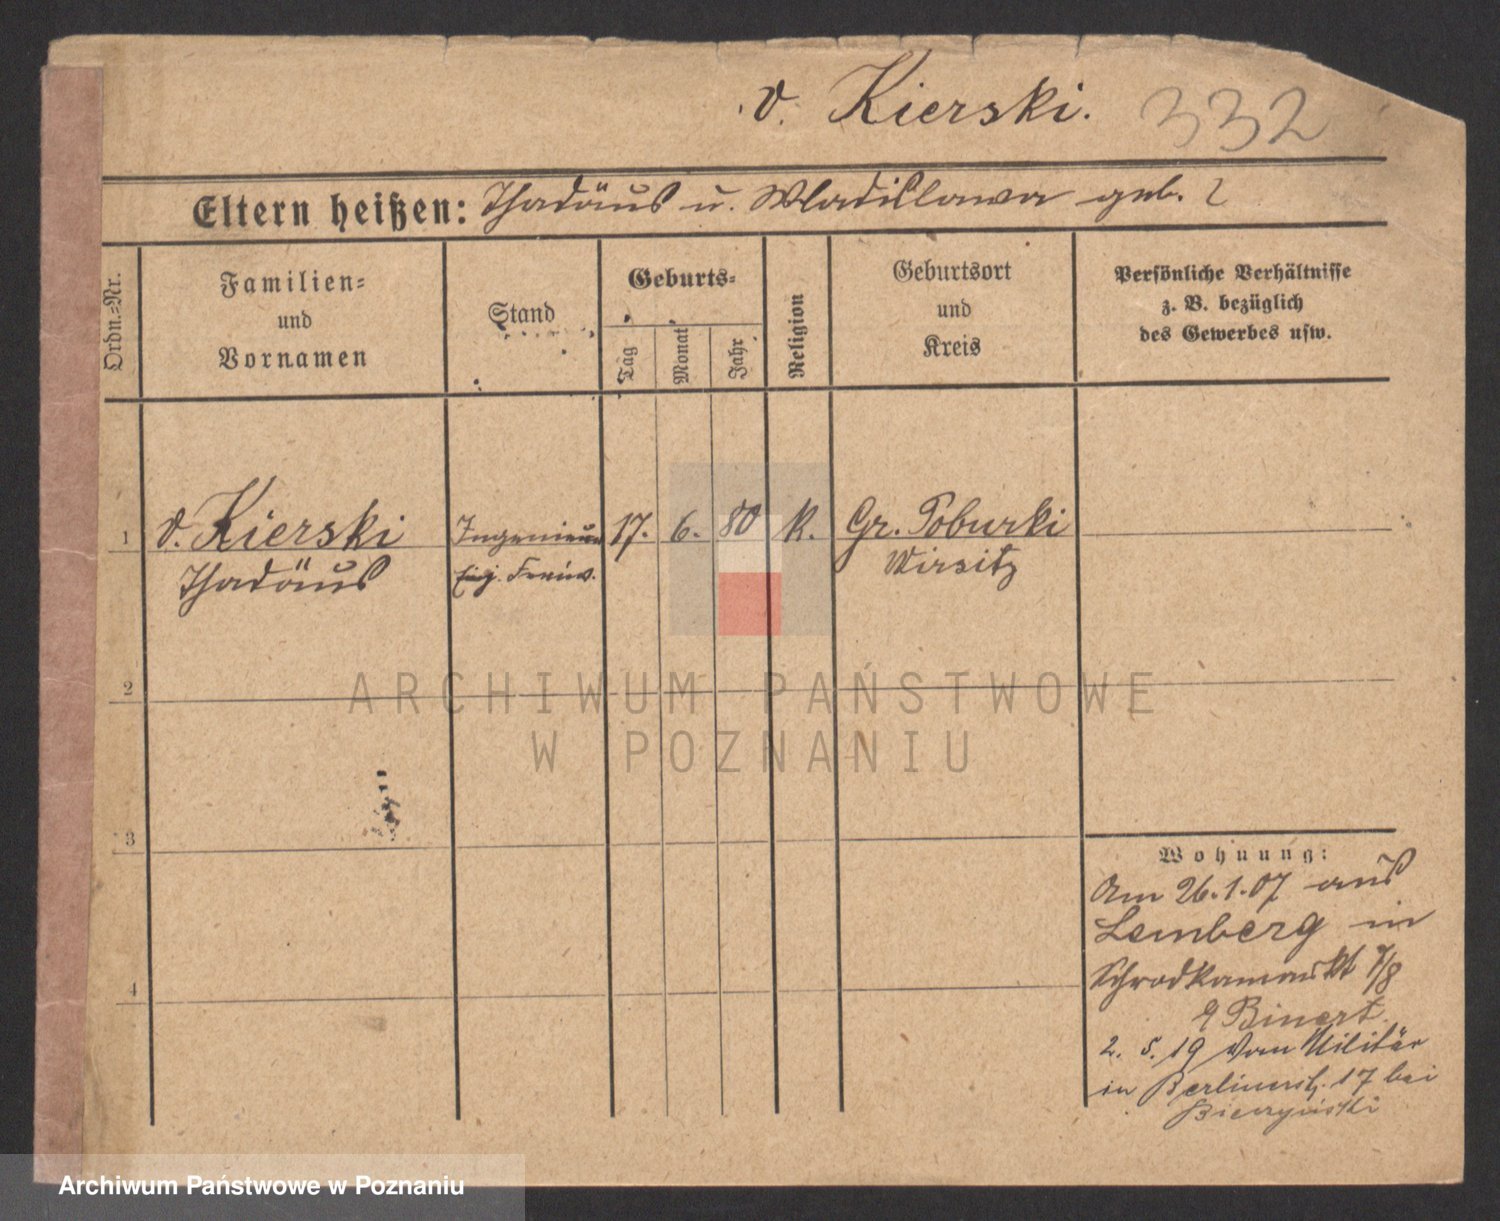 v. Kierski. 332
Eltern heißen: Thadäus u. Wladislawa geb. ?
Ordn.=Nr.
Familien=
und
Vornamen
Stand
Geburts=
Tag
Monat
Jahr
Religion
Geburtsort
und
Kreis
Persönliche Verhältnisse
z. B. bezüglich
des Gewerbes usw.
1 v. Kierski Ingenieur 17. 6. 80 k. Gr. Toburki
Thadäus Einj. Freiw. Wirsitz
2
3
4
Wohnung:
Am 26.1.07 aus
Lemberg in
Schrodkamarkt 7/8
Binert.
2. 5. 19 vom Militär
in Berlinerstr. 17 bei
ARCHIWUM PAŃSTWOWE
W POZNANIU
Archiwum Państwowe w Poznaniu